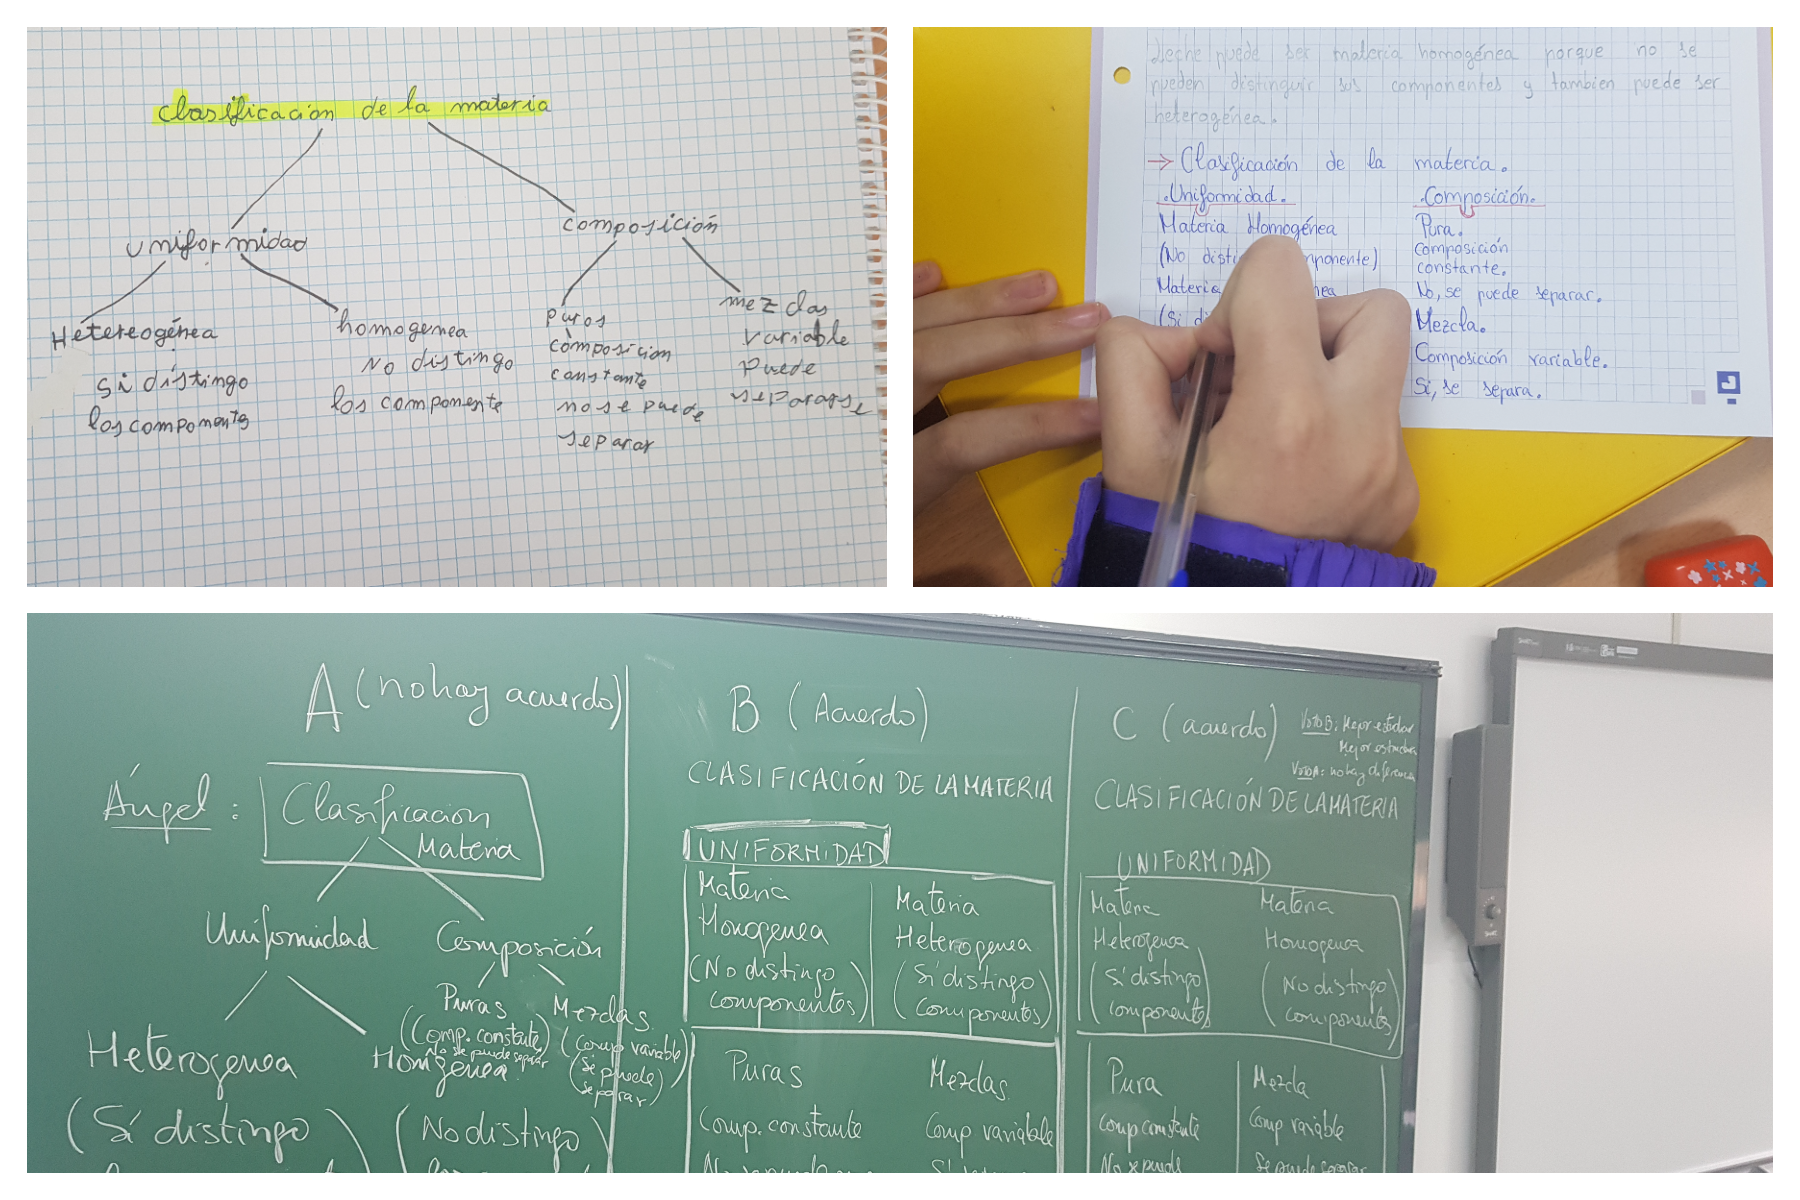 clasificación de la materia
uniformidad
composición
Hetereogénea
si distingo
los components
homogenea
No distingo
los componente
puros
composicion
constante
no se puede
separar
mezclas
variable
puede
separarse
leche puede ser materia homogénea porque no se
pueden distinguir sus componentes y tambien puede ser
heterogénea.
→ Clasificación de la materia.
.Uniformidad.
Materia Homogénea
(No
Materia
(Si
.Composición.
Pura.
composición
constante.
No, se puede separar.
Mezcla.
Composición variable.
Si, se separa.
A (no hay acuerdo)
Ángel: Clasificacion
Materia
Uniformidad
Composición
Puras
(Comp. constante)
No se puede separar
Mezclas
(comp variable)
(se puede)
separar)
Heterogenea
(Sí distingo
Homgénea
(No distingo
B (Acuerdo)
CLASIFICACIÓN DE LA MATERIA
UNIFORMIDAD
Materia
Homogenea
(No distingo
componentes)
Materia
Heterogenea
(Sí distingo
componentes)
Puras
Comp. constante
Mezclas
Comp variable
C (acuerdo)
Voto B: Mejor
Mejor estructura
Voto A: no hay diferencia
CLASIFICACIÓN DE LA MATERIA
UNIFORMIDAD
Materia
Heterogenea
(Sí distingo
componentes)
Materia
Homogenea
(No distingo
componentes)
Pura
comp constante
No se puede
Mezcla
Comp variable
Se puede separar